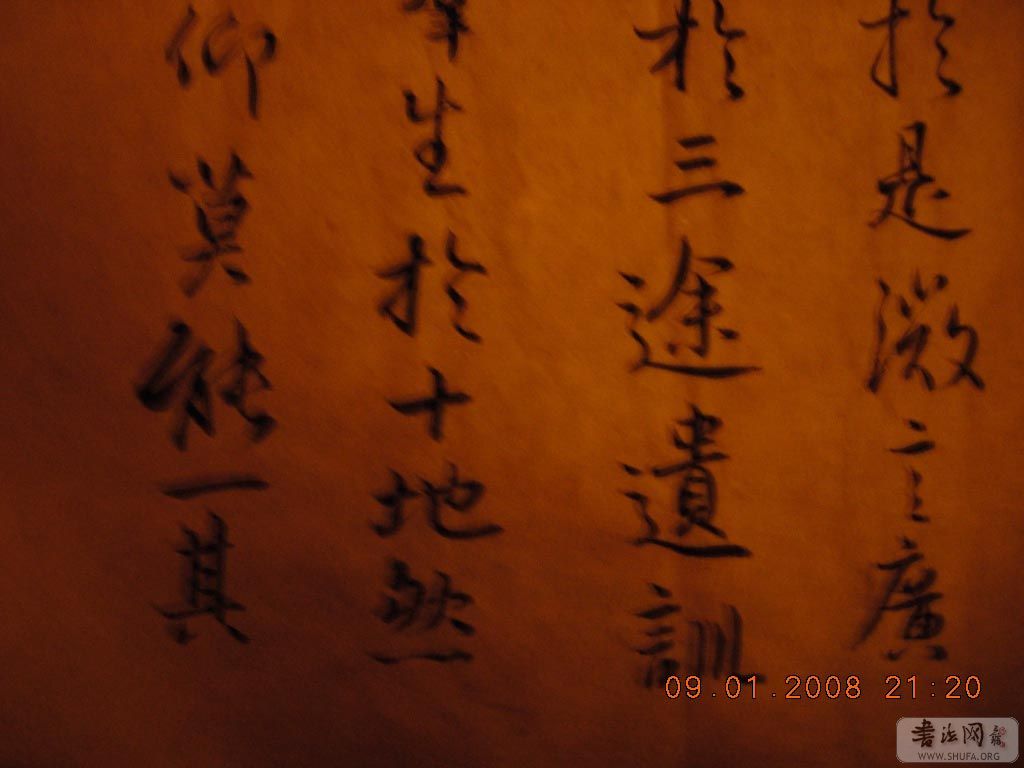 於是微言廣
於三途遺訓
羣生於十地然
仰莫能一其
09.01.2008 21:20
书法网
WWW.SHUFA.ORG